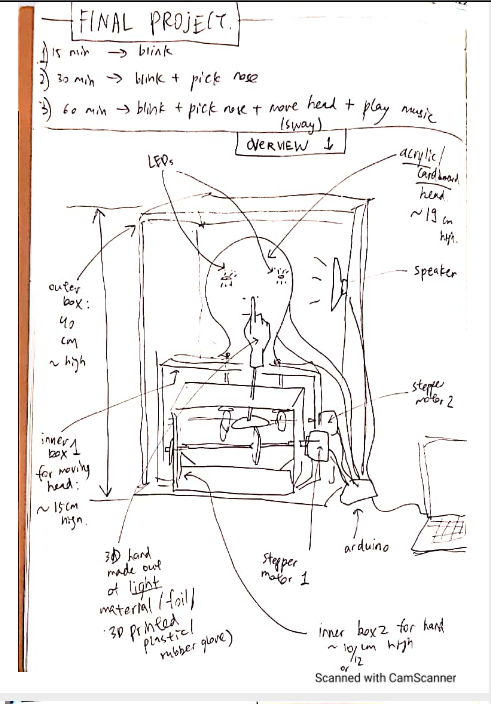 FINAL PROJECT.
1) 15 min → blink
2) 30 min → blink + pick nose
3) 60 min → blink + pick nose + move head + play music
(sway)
OVERVIEW ↓
LEDs
acrylic/
cardboard
head
~19 cm
high.
speaker
outer
box:
40
cm
~ high
stepper
motor 2
inner
box 1
for moving
head:
~15cm
high.
arduino
stepper
motor 1
3D hand
made out
of light
material (foil/
3D printed
plastic/
rubber glove)
inner box 2 for hand
~10/cm high
or 12
Scanned with CamScanner